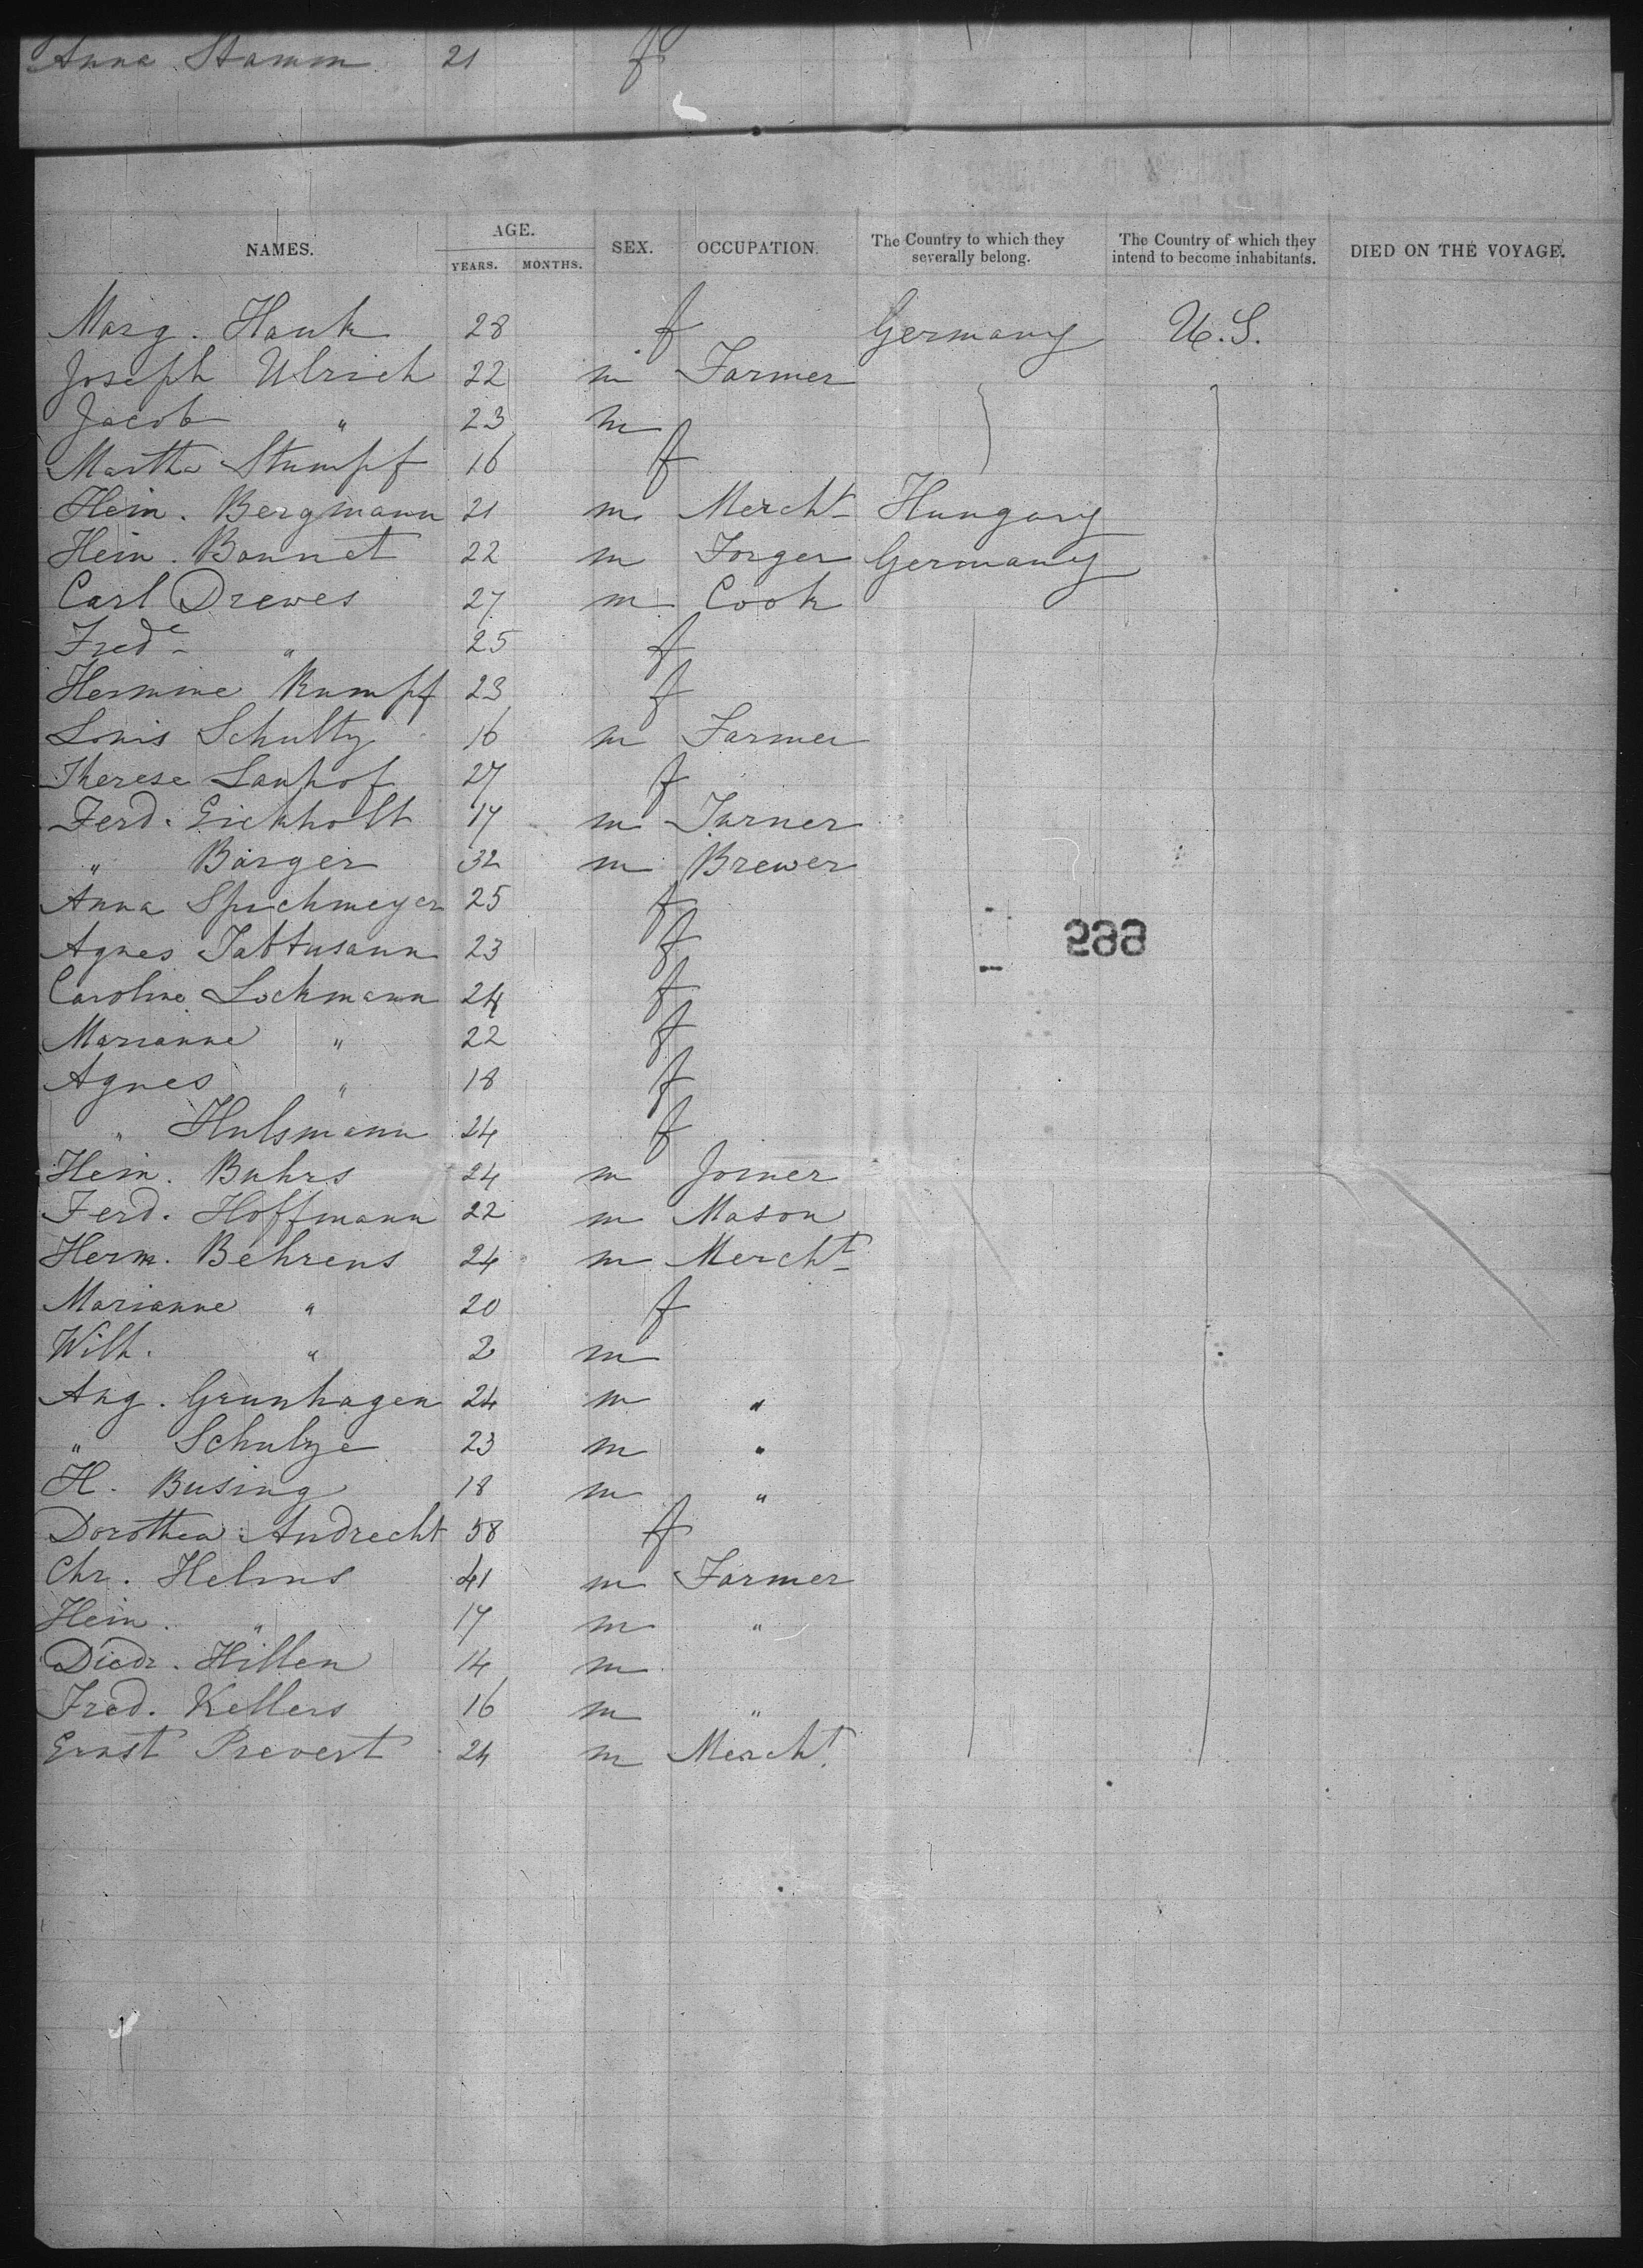 Anna Stamm 21 f
NAMES. AGE. YEARS. MONTHS. SEX. OCCUPATION. The Country to which they severally belong. The Country of which they intend to become inhabitants. DIED ON THE VOYAGE.
Marg. Hauk 28 f Germany U.S.
Joseph Ulrich 22 m Farmer
Jacob " 23 m
Martha Stumpf 16 f
Hein. Bergmann 21 m Mercht Hungary
Hein. Bonnet 22 m Forger Germany
Carl Drewes 27 m Cook
Fred " 25 f
Hermine Rumpf 23 f
Louis Schultz 16 m Farmer
Therese 27 f
Ferd. Eickholt 17 m Turner
" Barger 32 m Brewer
Anna Spichmeyer 25 f
Agnes 23 f
Caroline Lockmann 24 f
Marianne " 22 f
Agnes " 18 f
" Hulsmann 24 f
Hein. Buhrs 24 m Joiner
Ferd. Hoffmann 22 m Mason
Herm. Behrens 24 m Mercht
Marianne " 20 f
Wilh. " 2 m
Aug. Grunhagen 24 m "
" Schulze 23 m "
H. Busing 18 m "
Dorothea Andrecht 58 f
Chr. Helms 41 m Farmer
Hein. " 17 m "
Diedr. Hillen 14 m
Fred. Kellers 16 m "
Ernst Prevert 24 m Mercht.